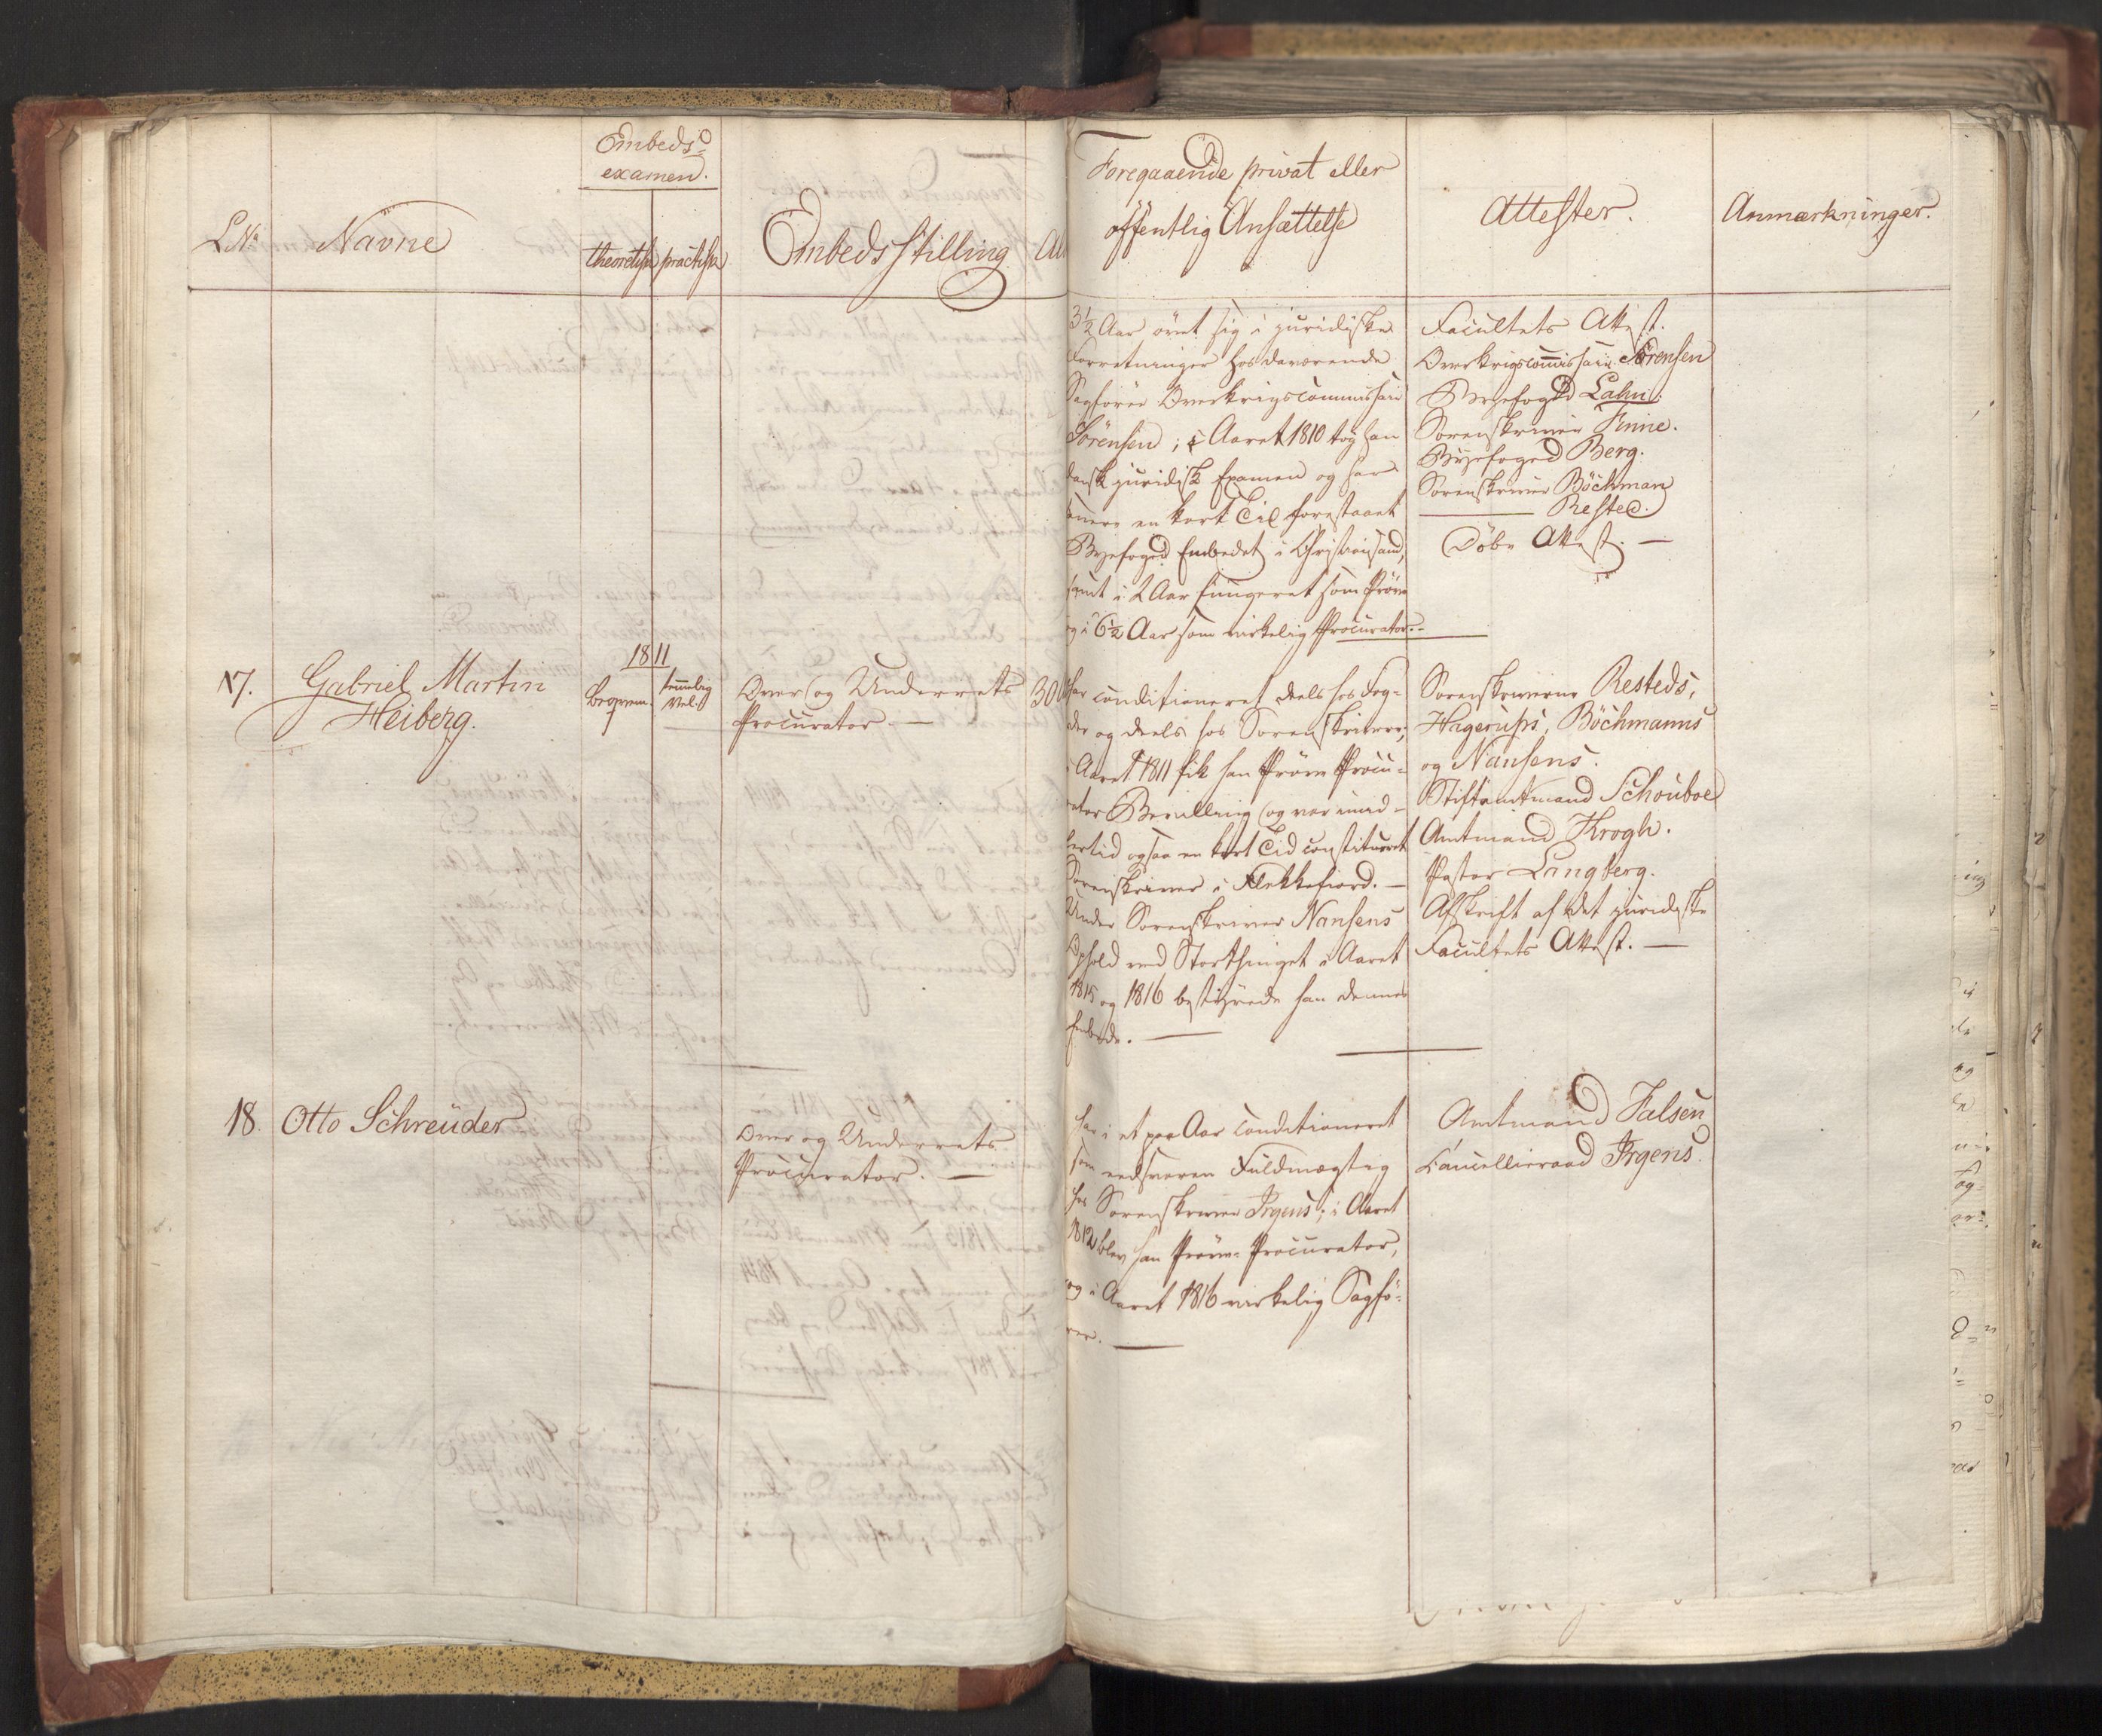 Embeds=
examen.
L. No
Navne
theoretisk
practisk
Embedsstilling
Foregaaende privat eller
offentlig Ansættelse
Attester.
Anmærkninger.
3½ Aar øvet sig i juridiske
Forretninger hos daværende
Sagfører Overkrigscommissair
Sörensen; i Aaret 1810 tog han
dansk juridisk Examen og har
senere en kort Tid forestaaet
Byefoged Embedet i Christiansand,
samt i 2 Aar fungeret som Prøve
og i 6½ Aar som virkelig Procurator.
Facultets Attest.
Overkrigscommissair Sörensen
Byefoged Lahn.
Sorenskriver Finne.
Byefoged Berg.
Sorenskriver Böchman
——— Rested.
Døbe Attest. —
17.
Gabriel Martin
Heiberg.
1811
beqvem.
temmelig
vel.
Over og Underrets
Procurator. —
30
har conditioneret deels hos Fog=
der og deels hos Sorenskrivere;
i Aaret 1811 fik han Prøve Procu=
rator Bevilling og var imid=
lertid ogsaa en kort Tid constitueret
Sorenskriver i Flekkefiord. —
Under Sorenskriver Nansens
Ophold ved Storthinget i Aaret
1815 og 1816 bestyrede han dennes
Embede. —
Sorenskriverne Resteds,
Hagerups, Böchmanns
og Nansens.
Stiftamtmand Schouboe
Amtmand Krogh.
Pastor Langberg.
Afskrift af det juridiske
Facultets Attest. —
18.
Otto Schreuder
Over og Underrets
Procurator. —
har i et par Aar conditioneret
som eedsvoren Fuldmægtig
hos Sorenskriver Irgens; i Aaret
1812 blev han Prøve-Procurator,
og i Aaret 1816 virkelig Sagfø=
rer. —
Amtmand Falsen
Cancellieraad Irgens.